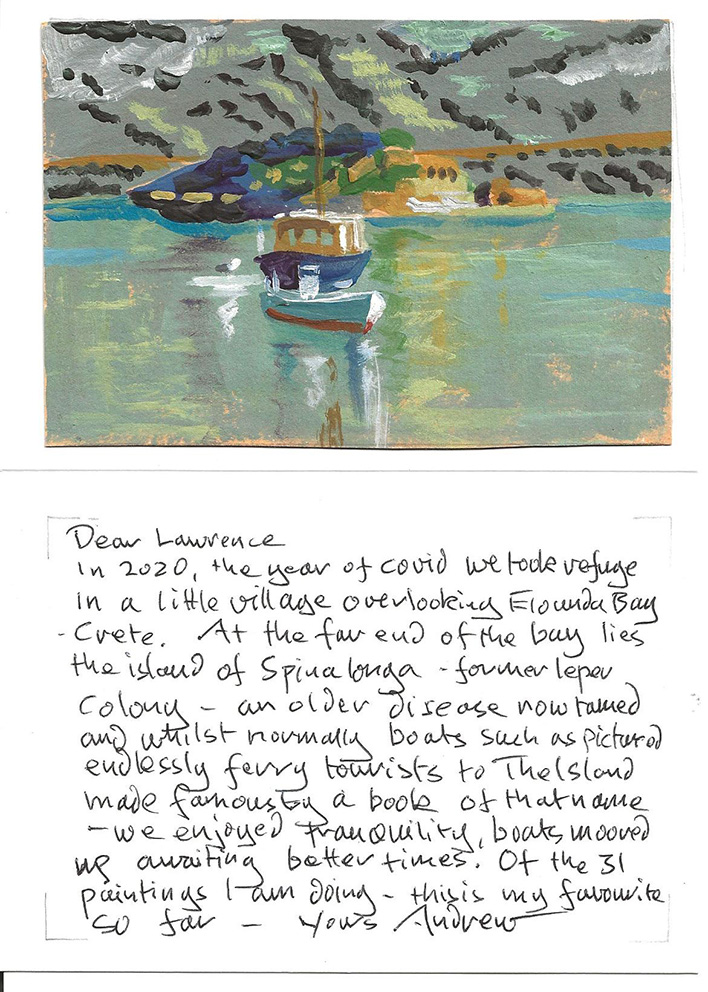 Dear Lawrence
in 2020, the year of covid we took refuge
in a little village overlooking Elounda Bay
- Crete. At the far end of the bay lies
the island of Spinalonga - former leper
colony - an older disease now tamed
and whilst normally boats such as pictured
endlessly ferry tourists to The Island
made famous by a book of that name
- we enjoyed tranquility, boats moored
up awaiting better times. Of the 31
paintings I am doing - this is my favourite
so far - Yours Andrew